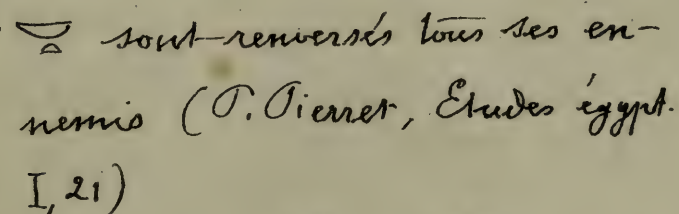 sont renversés tous ses en-
nemis (P. Pierret, Etudes égypt.
I, 21)